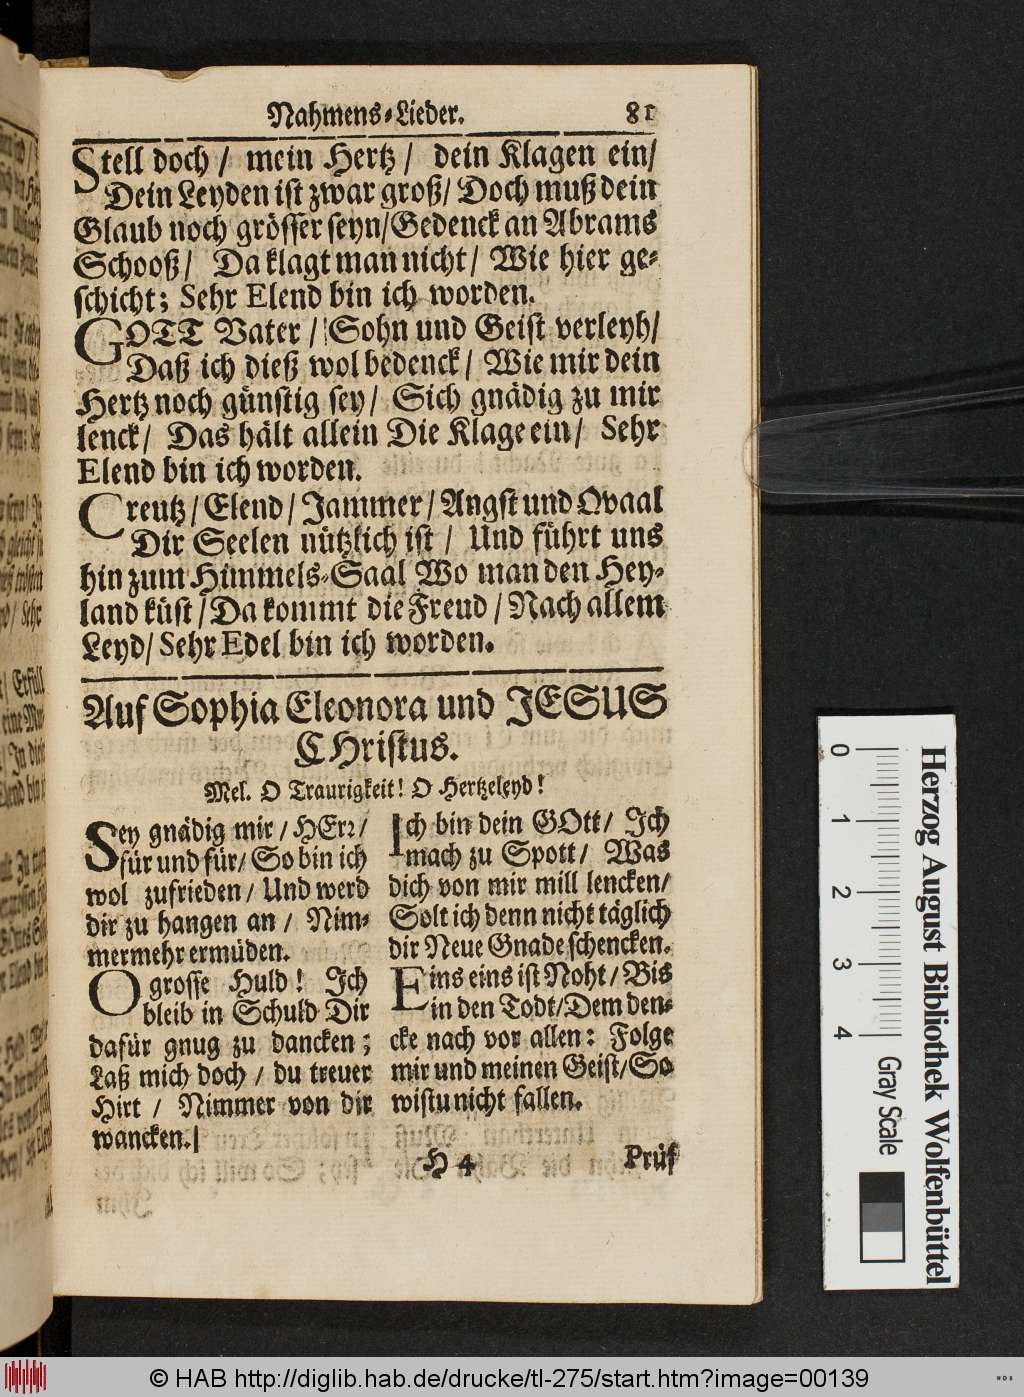 Nahmens-Lieder. 81
Stell doch / mein Hertz / dein Klagen ein/
Dein Leyden ist zwar groß/ Doch muß dein
Glaub noch grösser seyn/Gedenck an Abrams
Schooß/ Da klagt man nicht/ Wie hier ge-
schicht; Sehr Elend bin ich worden.
GOTT Vater / Sohn und Geist verleyh/
Daß ich dieß wol bedenck/ Wie mir dein
Hertz noch günstig sey/ Sich gnädig zu mir
lenck/ Das hält allein Die Klage ein/ Sehr
Elend bin ich worden.
Creutz / Elend / Jammer / Angst und Qvaal
Dir Seelen nützlich ist / Und führt uns
hin zum Himmels-Saal Wo man den Hey-
land küst / Da kommt die Freud / Nach allem
Leyd/ Sehr Edel bin ich worden.
Auf Sophia Eleonora und JESUS
CHristus.
Mel. O Traurigkeit! O Hertzeleyd!
Sey gnädig mir / HErr/
für und für/ So bin ich
wol zufrieden / Und werd
dir zu hangen an / Nim-
mermehr ermüden.
O grosse Huld! Ich
bleib in Schuld Dir
dafür gnug zu dancken;
Laß mich doch / du treuer
Hirt / Nimmer von dir
wancken.
Ich bin dein GOtt/ Ich
mach zu Spott/ Was
dich von mir will lencken/
Solt ich denn nicht täglich
dir Neue Gnade schencken.
Eins eins ist Noht/ Bis
in den Todt/Dem den-
cke nach vor allen: Folge
mir und meinen Geist/So
wistu nicht fallen.
H 4 Prüf
0 1 2 3 4 Gray Scale
Herzog August Bibliothek Wolfenbüttel
© HAB http://diglib.hab.de/drucke/tl-275/start.htm?image=00139